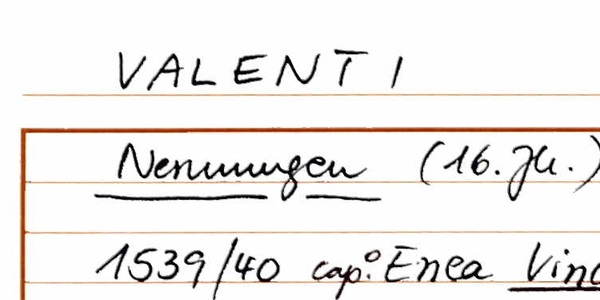 VALENTI
Nennungen (16. Jh.)
1539/40 cap.º Enea Vinc